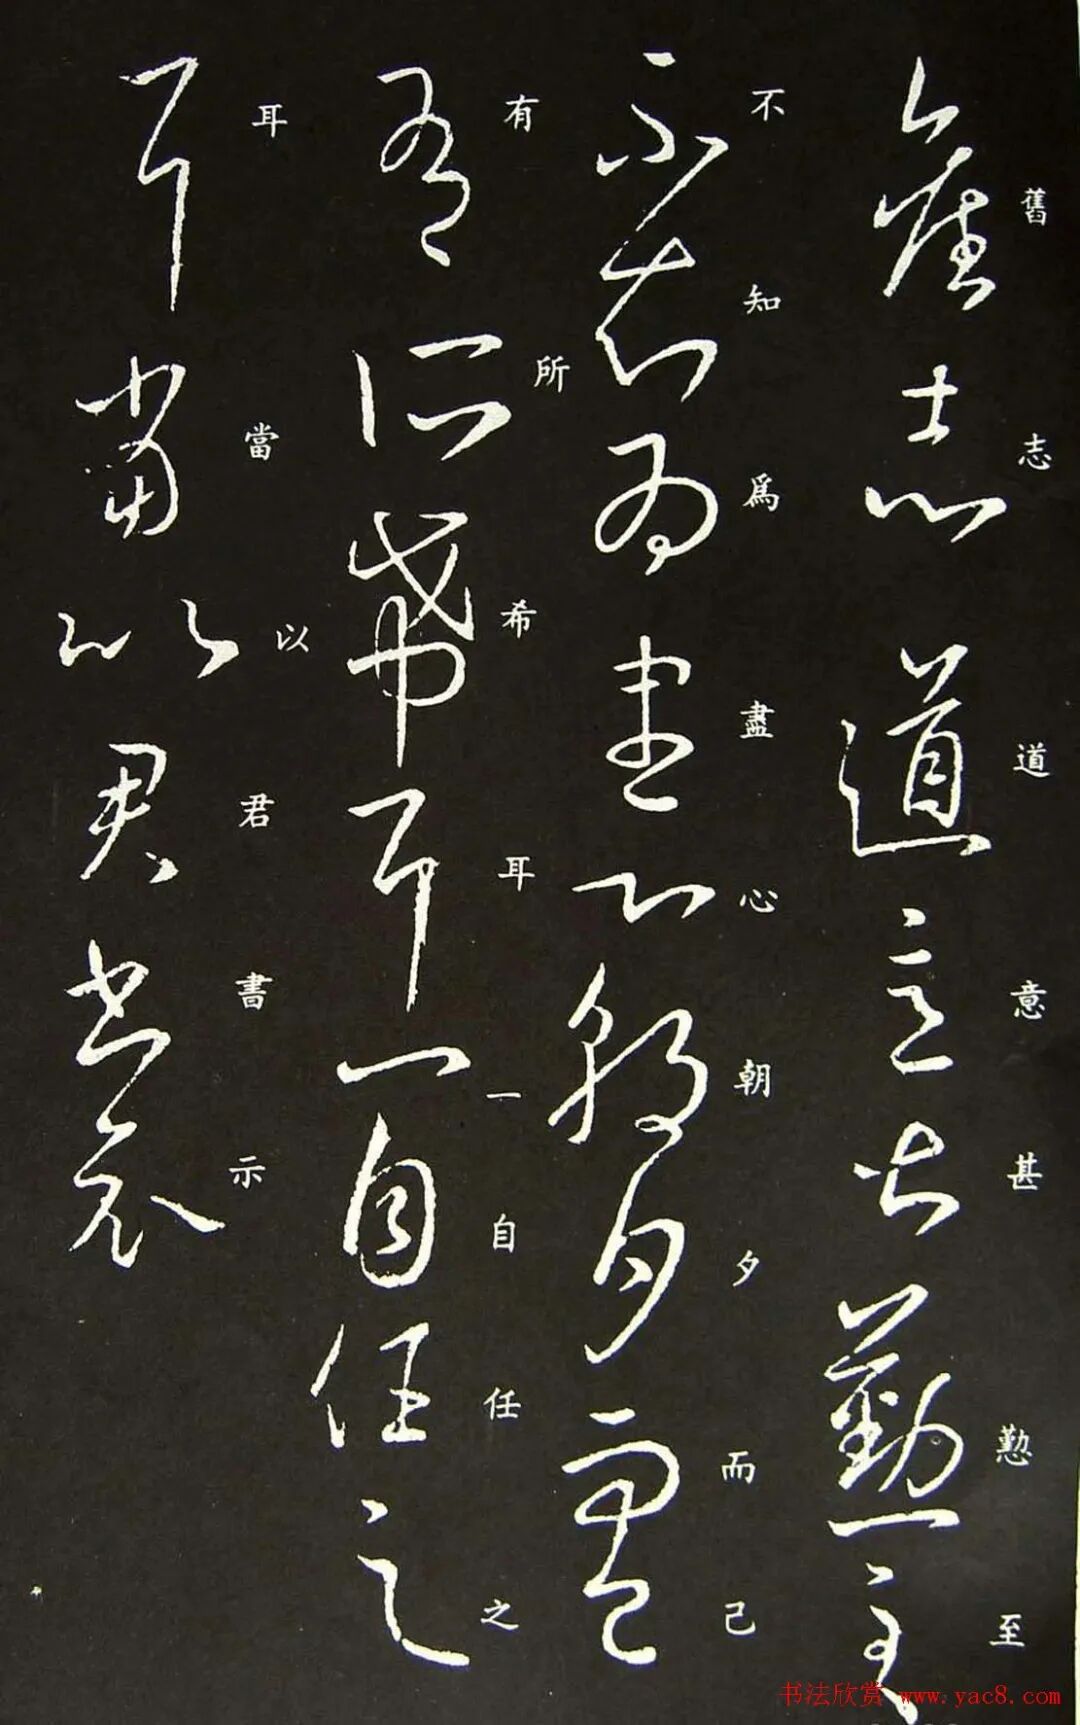 舊志道意甚懃至
不知爲盡心朝夕而已
有所希耳一自任之
耳當以君書示
书法欣赏 www.yac8.com